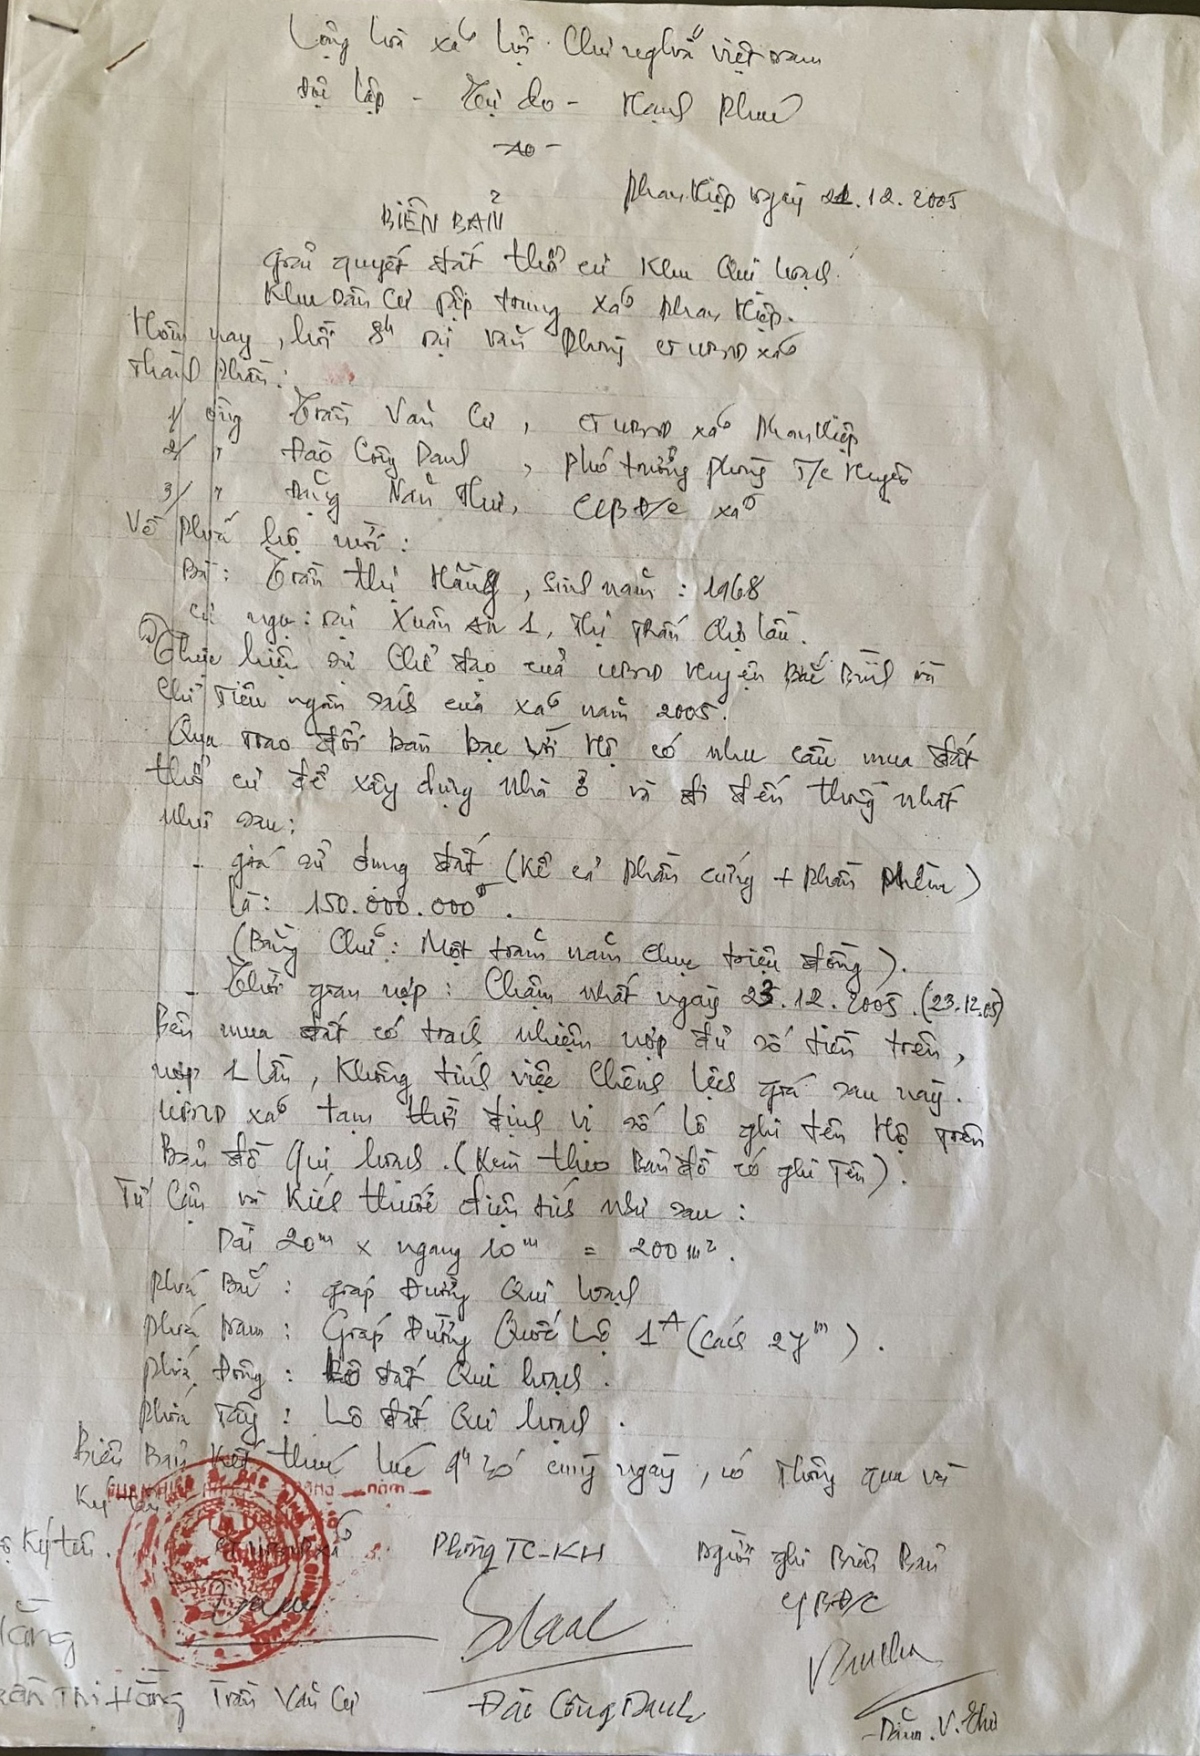 Cộng hòa xã hội Chủ nghĩa Việt Nam
Độc lập - Tự do - Hạnh phúc
Phan Hiệp ngày 21.12.2005
BIÊN BẢN
Giải quyết đất thổ cư khu Qui hoạch
Khu dân cư tập trung xã Phan Hiệp.
Hôm nay, hồi 8h tại Văn phòng CT UBND xã
Thành phần:
1/ ông Trần Văn Cư, CT UBND xã Phan Hiệp
2/ " Đào Công Danh, phó trưởng phòng T/C huyện
3/ " Đặng Văn Thư, CBĐ/C xã
Về phía hộ mới:
Bà: Trần Thị Hằng, sinh năm: 1968
Cư ngụ: tại Xuân An 1, Thị Trấn Chợ Lầu.
Thực hiện sự chỉ đạo của UBND huyện Bắc Bình và
Chỉ tiêu ngân sách của xã năm 2005.
Qua trao đổi bàn bạc với Hộ có nhu cầu mua đất
thổ cư để xây dựng nhà ở và đi đến thống nhất
như sau:
- giá sử dụng đất (Kể cả phần cứng + phần mềm)
là: 150.000.000đ.
(Bằng Chữ: Một trăm năm chục triệu đồng).
- Thời gian nộp: Chậm nhất ngày 23.12.2005. (23.12.05)
Bên mua đất có trách nhiệm nộp đủ số tiền trên,
nộp 1 lần, Không tính việc Chênh lệch giá sau này.
UBND xã tạm thời định vị số lô ghi tên Hộ trên
Bản đồ Qui hoạch. (Kèm theo Bản đồ có ghi Tên).
Tứ Cận và Kích thước diện tích như sau:
Dài 20m x ngang 10m = 200m2.
phía Bắc: giáp Đường Qui hoạch
phía Nam: Giáp Đường Quốc Lộ 1A (Cách 27m).
phía Đông: Lô đất Qui hoạch.
phía Tây: Lô đất Qui hoạch.
Biên Bản Kết thúc lúc 9h30 cùng ngày, có Thông qua và
Ký tên
Ký tên. CT UBND xã Phòng TC-KH Người ghi Biên Bản
CBĐ/C
Hằng
Trần Thị Hằng Trần Văn Cư Đào Công Danh Đặng.V.Thư